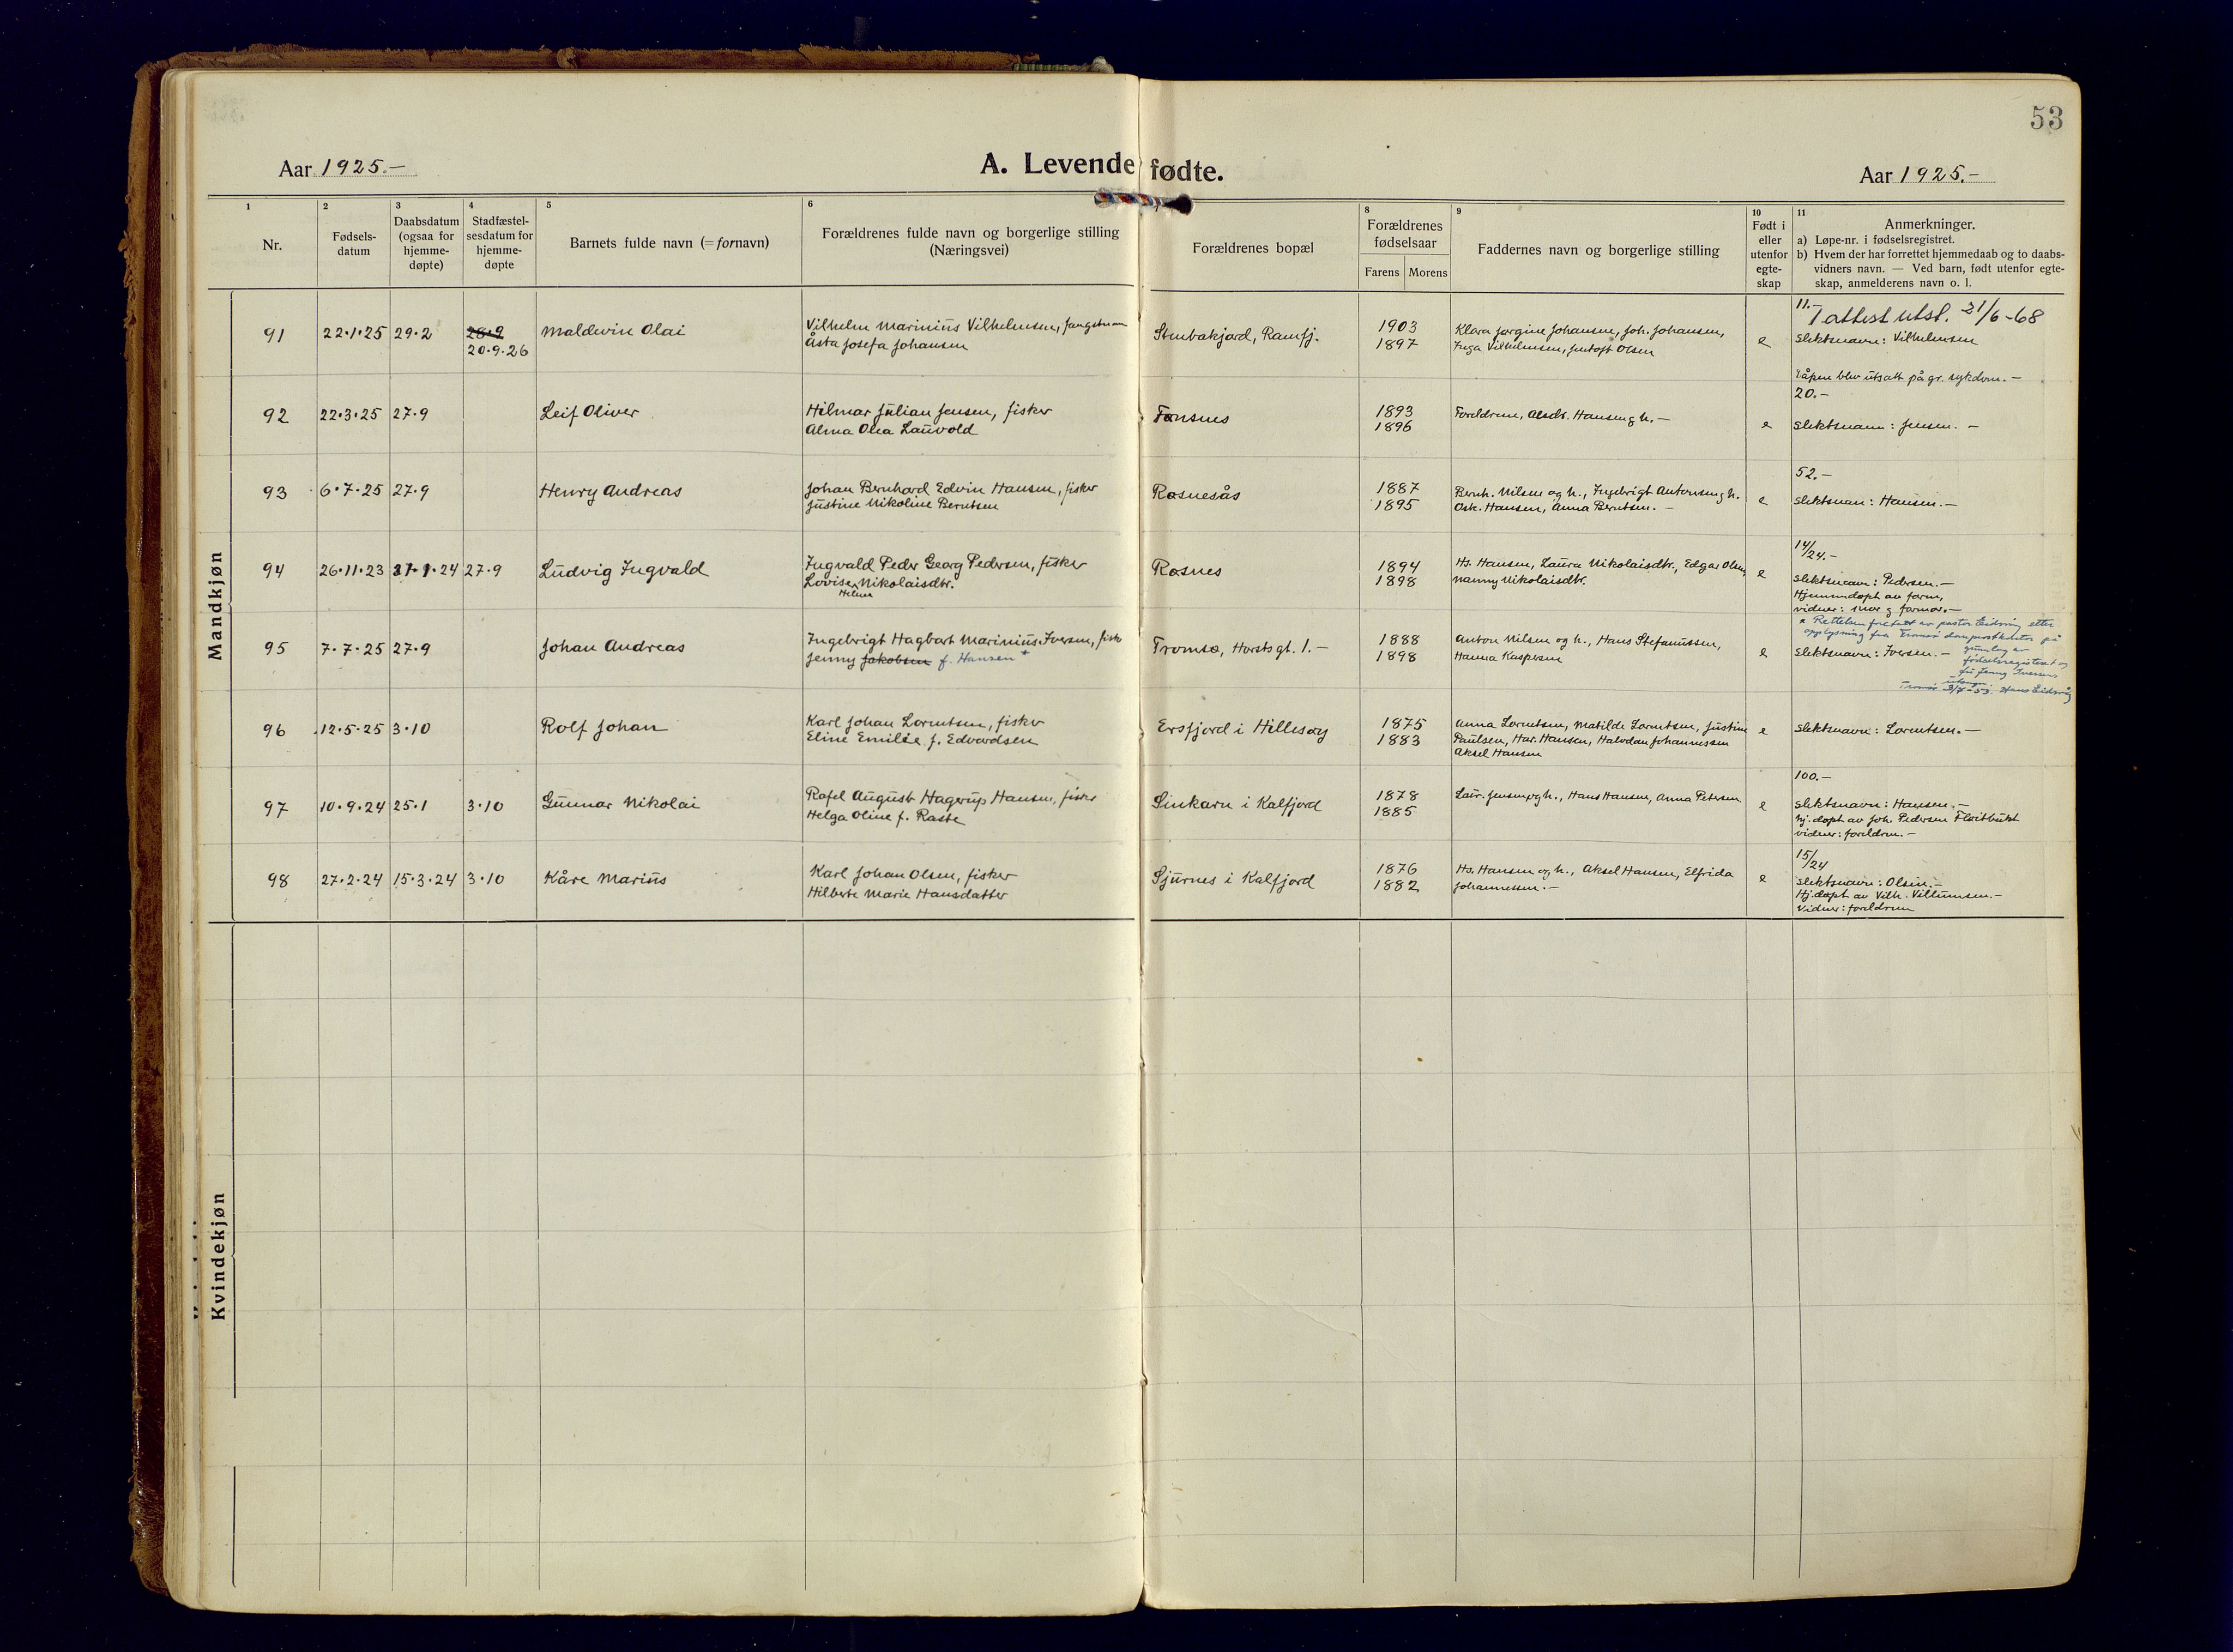 53
Aar 1925.-
A. Levendefødte.
Aar 1925.-
1
2
3
4
5
6
7
8
9
10
11
Nr.
Fødsels-
datum
Daabsdatum
(ogsaa for
hjemme-
døpte)
Stadfæstel-
sesdatum for
hjemme-
døpte
Barnets fulde navn (= fornavn)
Forældrenes fulde navn og borgerlige stilling
(Næringsvei)
Forældrenes bopæl
Forældrenes
fødselsaar
Farens
Morens
Faddernes navn og borgerlige stilling
Født i
eller
utenfor
egte-
skap
Anmerkninger.
a) Løpe-nr. i fødselsregistret.
b) Hvem der har forrettet hjemmedaab og to daabs-
vidners navn. — Ved barn, født utenfor egte-
skap, anmelderens navn o. l.
Mandkjøn
91
22.1.25
29.2
28.9
20.9.26
Maldewin Olai
Vilhelm Marinius Vilhelmsen, fangstmann
Åsta Josefa Johansen
Stenbakjord, Ramfj.
1903
1897
Klara Jørgine Johansen, Joh. Johansen,
Inga Vilhelmsen, Olsen
e
11.-
1 attest utst. 21/6-68
Slektsnavn: Vilhelmsen
Dåpen blev utsatt på gr. sykdom.-
92
22.3.25
27.9
Leif Oliver
Hilmar Julian Jensen, fisker
Alma Olea Lauvold
Tønsnes
1893
1896
Foreldrene, Alsdr. Hansen g h.-
e
20.-
Slektsnavn: Jensen.-
93
6.7.25
27.9
Henry Andreas
Johan Bernhard Edvin Hansen, fisker
Justine Nikoline Berntsen
Røsnesås
1887
1895
Bernh. Nilsen og h., Ingebrigt Antonsen g h.
Osk. Hansen, Anna Berntsen.-
e
52.-
Slektsnavn: Hansen.-
94
26.11.23
27.1.24
27.9
Ludvig Ingvald
Ingvald Peder Georg Pedersen, fisker
Lovise Nikolaisdtr.
Helene
Røsnes
1894
1898
Hs. Hansen, Laura Nikolaisdtr., Edgar Olsen,
Nanny Nikolaisdtr.
e
14/24.-
Slektsnavn: Pedersen.-
Hjemmedøpt av farm,
vidner: mor g farmor.-
95
7.7.25
27.9
Johan Andreas
Ingebrigt Hagbart Marinius Iversen, fisk
Jenny Jakobsen f. Hansen *
Tromsø, Havstsgt. 1.-
1888
1898
Anton Nilsen og h., Hans Stefanussen,
Hanna Kaspersen
e
* Rettelsen foretatt av pastor Eidsvig etter
opplysning fra Tromsø domprostkontor på
grunnlag av
fødselsregisteret og
fru Jenny Iversens
Slektsnavn: Iversen.-
Tromsø 3/7-53. Hans Eidsvig
96
12.5.25
3.10
Rolf Johan
Karl Johan Lorentsen, fisker
Eline Emilie f. Edvardsen
Ersfjord i Hillesøy
1875
1883
Anna Lorentsen, Matilde Lorentsen, Justine
Paulsen, Har. Hansen, Halvdan Johannessen
Aksel Hansen
e
Slektsnavn: Lorentsen.-
97
10.9.24
25.1
3.10
Gunnar Nikolai
Rafel August Hagerup Hansen, fisker
Helga Oline f. Raste
Sinkarn i Kalfjord
1878
1885
Laur. Jensen og h., Hans Hansen, Anna Petersen
e
100.-
Slektsnavn: Hansen.-
hj.døpt av Joh. Pedersen Fløitbukt
vidner: foreldrene.-
98
27.2.24
15.3.24
3.10
Kåre Marius
Karl Johan Olsen, fisker
Hilberte Marie Hansdatter
Sjurnes i Kalfjord
1876
1882
Hs. Hansen og h., Aksel Hansen, Elfrida
Johannessen.-
e
15/24
Slektsnavn: Olsen.-
Hj.døpt av Vilh. Villumsen.-
Vidner: foreldrene
Kvindekjøn